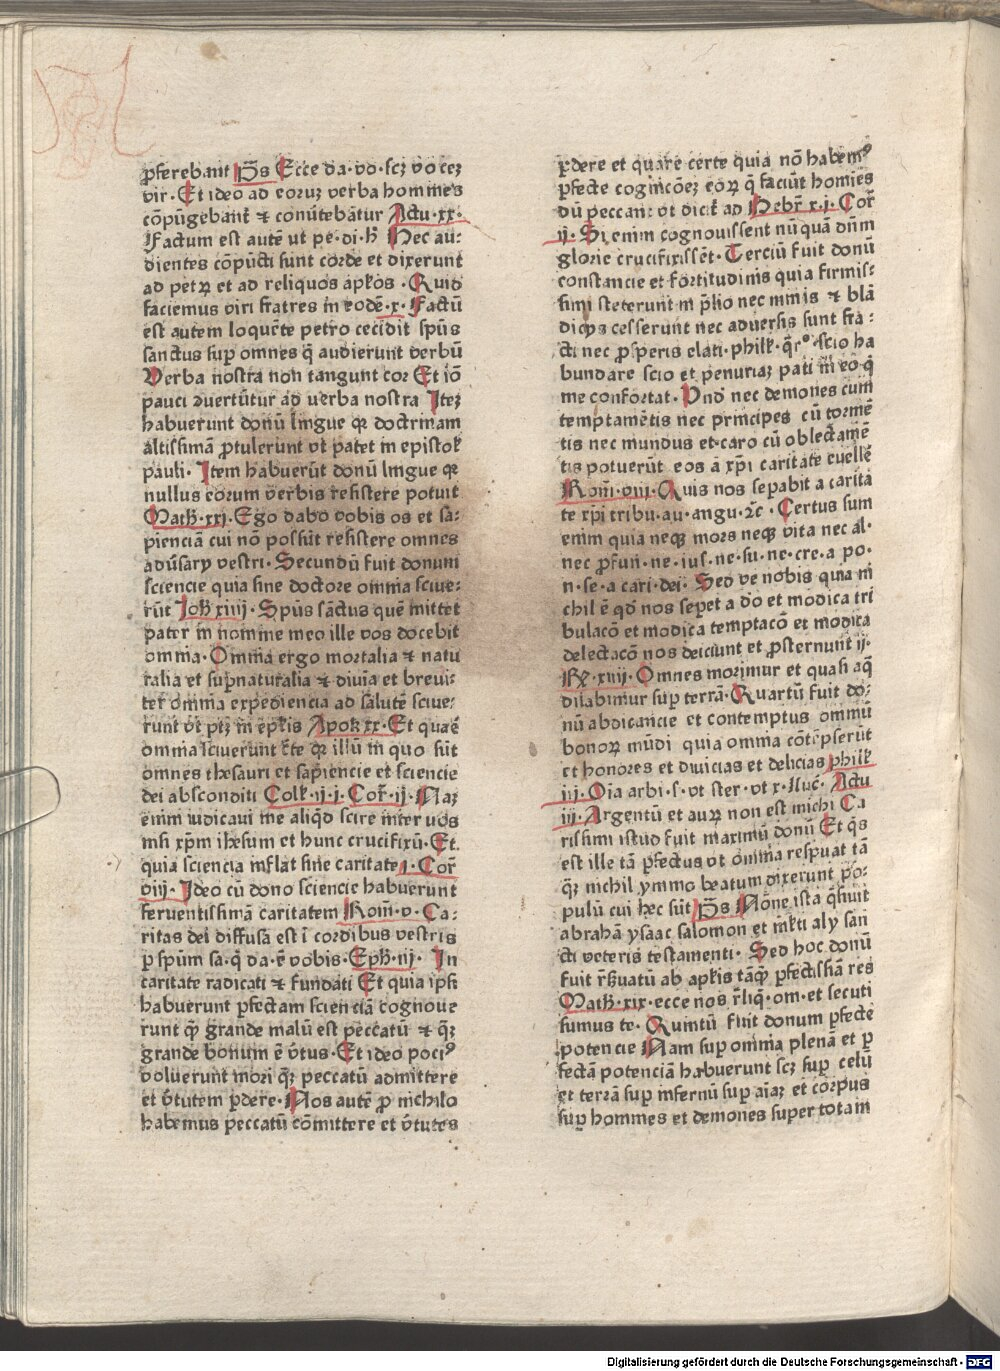 ꝓferebant Ps Ecce da·vo·scꝫ vo ceꝫ
vir· Et ideo ad eoruꝫ verba homines
cōpūgebant᷑ ⁊ conūtebātur Actu·xx·
Factum est autē ut pe·di·h̄ Hec au-
dientes cōpūcti sunt corde et dixerunt
ad petꝝ et ad reliquos aplōs · Quid
faciemus viri fratres in eodē·x· Factū
est autem loquēte petro cecidit spūs
sanctus suꝑ omnes q̄ audierunt verbū
Verba nostra non tangunt cor Et iō
pauci ꝯvertūtur ad verba nostra Iteꝫ
habuerunt donū lingue qꝛ doctrinam
altissimā ꝓtulerunt vt patet in epistol̄
pauli· Item habuerūt donū lingue qꝛ
nullus eorum verbis resistere potuit
Math̄·xxj· Ego dabo vobis os et sa-
piēnciā cui nō possūt resistere omnes
adūsarij vestri· Secundū fuit donum
sciencie quia sine doctore omnia sciue-
rūt Joh̄ xiiij· Spūs sāctus quē mittet
pater in nomine meo ille vos docebit
omnia· Omnia ergo mortalia ⁊ natu
ralia et suꝑnaturalia ⁊ diuīa et breui-
ter omnia expediencia ad salutē sciue-
runt vt ptꝫ in epl̄is Apoꝯ xx· Et quāē
omnia sciuerunt c̄te qꝛ illū in quo sūt
omnes thesauri et sapiencie et sciencie
dei absconditi Coll̄·ij·j· Cor̄·ij· Naꝫ
enim iudicaui me aliqd̄ scire inter uos
nisi xp̄m ihesum et hunc crucifixū· Et·
quia sciencia inflat sine caritate j· Cor̄
viij· Ideo cū dono sciencie habuerunt
feruentissimā caritatem Rom̄·v· Ca-
ritas dei diffusa est ī cordibus vestris
ꝑ spūm sa·q̄ da·ē vobis· Eph̄·iij· In
caritate radicati ⁊ fundati Et quia ipsi
habuerunt ꝑfectam scienciā cognoue
runt qꝫ grande malū est peccatū ⁊ qꝫ
grande bonum ē v̄tus· Et ideo poci⁹
voluerunt mori qꝫ peccatū admittere
et v̄tutem ꝑdere· Nos autē ꝓ nichilo
habemus peccatū cōmittere et v̄tutes
ꝑdere et quare certe quia nō habem⁹
ꝑfecte cognicōeꝫ eoꝝ q̄ faciūt homies
dū peccant vt dicit᷑ ad Hebr̄ x·j· Cor̄
ij· Si enim cognouissent nūquā dn̄m
glorie crucifixissēt· Terciū fuit donū
constancie et fortitudinis quia firmis-
simi steterunt in p̄lio nec minis ⁊ blā
dicijs cesserunt nec aduersis sunt fra-
cti nec ꝓsperis elati·phil̄·q̄r°·scio ha
bundare scio et penuriaꝫ pati in eo q̄
me confortat· Und̄ nec demones cum
temptamētis nec principes cū tormē
tis nec mundus et caro cū oblectamē
tis potuerūt eos ā xp̄i caritate euelle
Rom̄·viij· Quis nos sepabit a carita
te xp̄i tribu·au·angu·⁊c· Certus sum
enim quia neqꝫ mors neqꝫ vita nec al·
nec ꝓfun·ne·ius·ne·fu·ne·cre·a po·
n·se·a cari·dei· Sed ve nobis quia ni
chil ē qd̄ nos sepet a dō et modica tri
bulacō et modica temptacō et modica
delectacō nos deiciunt et ꝓsternunt ij·
Rꝫ·xiiij· Omnes morimur et quasi aq̄
dilabimur suꝑ terrā· Quartū fuit do-
nū abdicancie et contemptus omniū
bonoꝝ mūdi quia omnia cōtēpserūt
et honores et diuicias et delicias phil̄
iij· Oīa arbi·s·vt ster·vt x·luc̄· Actu
iij· Argentū et auꝝ non est michi Ca
rissimi istud fuit maximū donū Et q̄s
est ille tā ꝑfectus vt omnia respuat tā
qꝫ nichil ymmo beatum dixerunt po-
pulū cui hec sūt Ps Nōne ista q̄siuit
abrahā ysaac salomon et ml̄ti alij san
cti veteris testamenti· Sed hoc donū
fuit r̄suatū ab apl̄is tāqꝫ ꝑfectissīa res
Math̄·xix·ecce nos r̄liq̄·om·et secuti
sumus te· Quintū fuit donum ꝑfecte
potencie Nam suꝑ omnia plenā et ꝑ
fectā potenciā habuerunt scꝫ suꝑ celū
et terrā suꝑ infernū suꝑ aīaꝫ et corpus
suꝑ homines et demones super totam
Digitalisierung gefördert durch die Deutsche Forschungsgemeinschaft · DFG